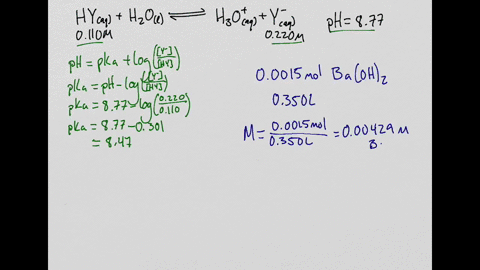 HY(aq) + H₂O(ℓ) ⇌ H₃O⁺(aq) + Y⁻(aq) pH = 8.77
0.110M 0.220M
pH = pKa + log([Y⁻]/[HY])
pKa = pH - log([Y⁻]/[HY])
pKa = 8.77 - log(0.220/0.110)
pKa = 8.77 - 0.301
= 8.47
0.0015 mol Ba(OH)₂
0.350L
M = 0.0015 mol/0.350L = 0.00429 M
B